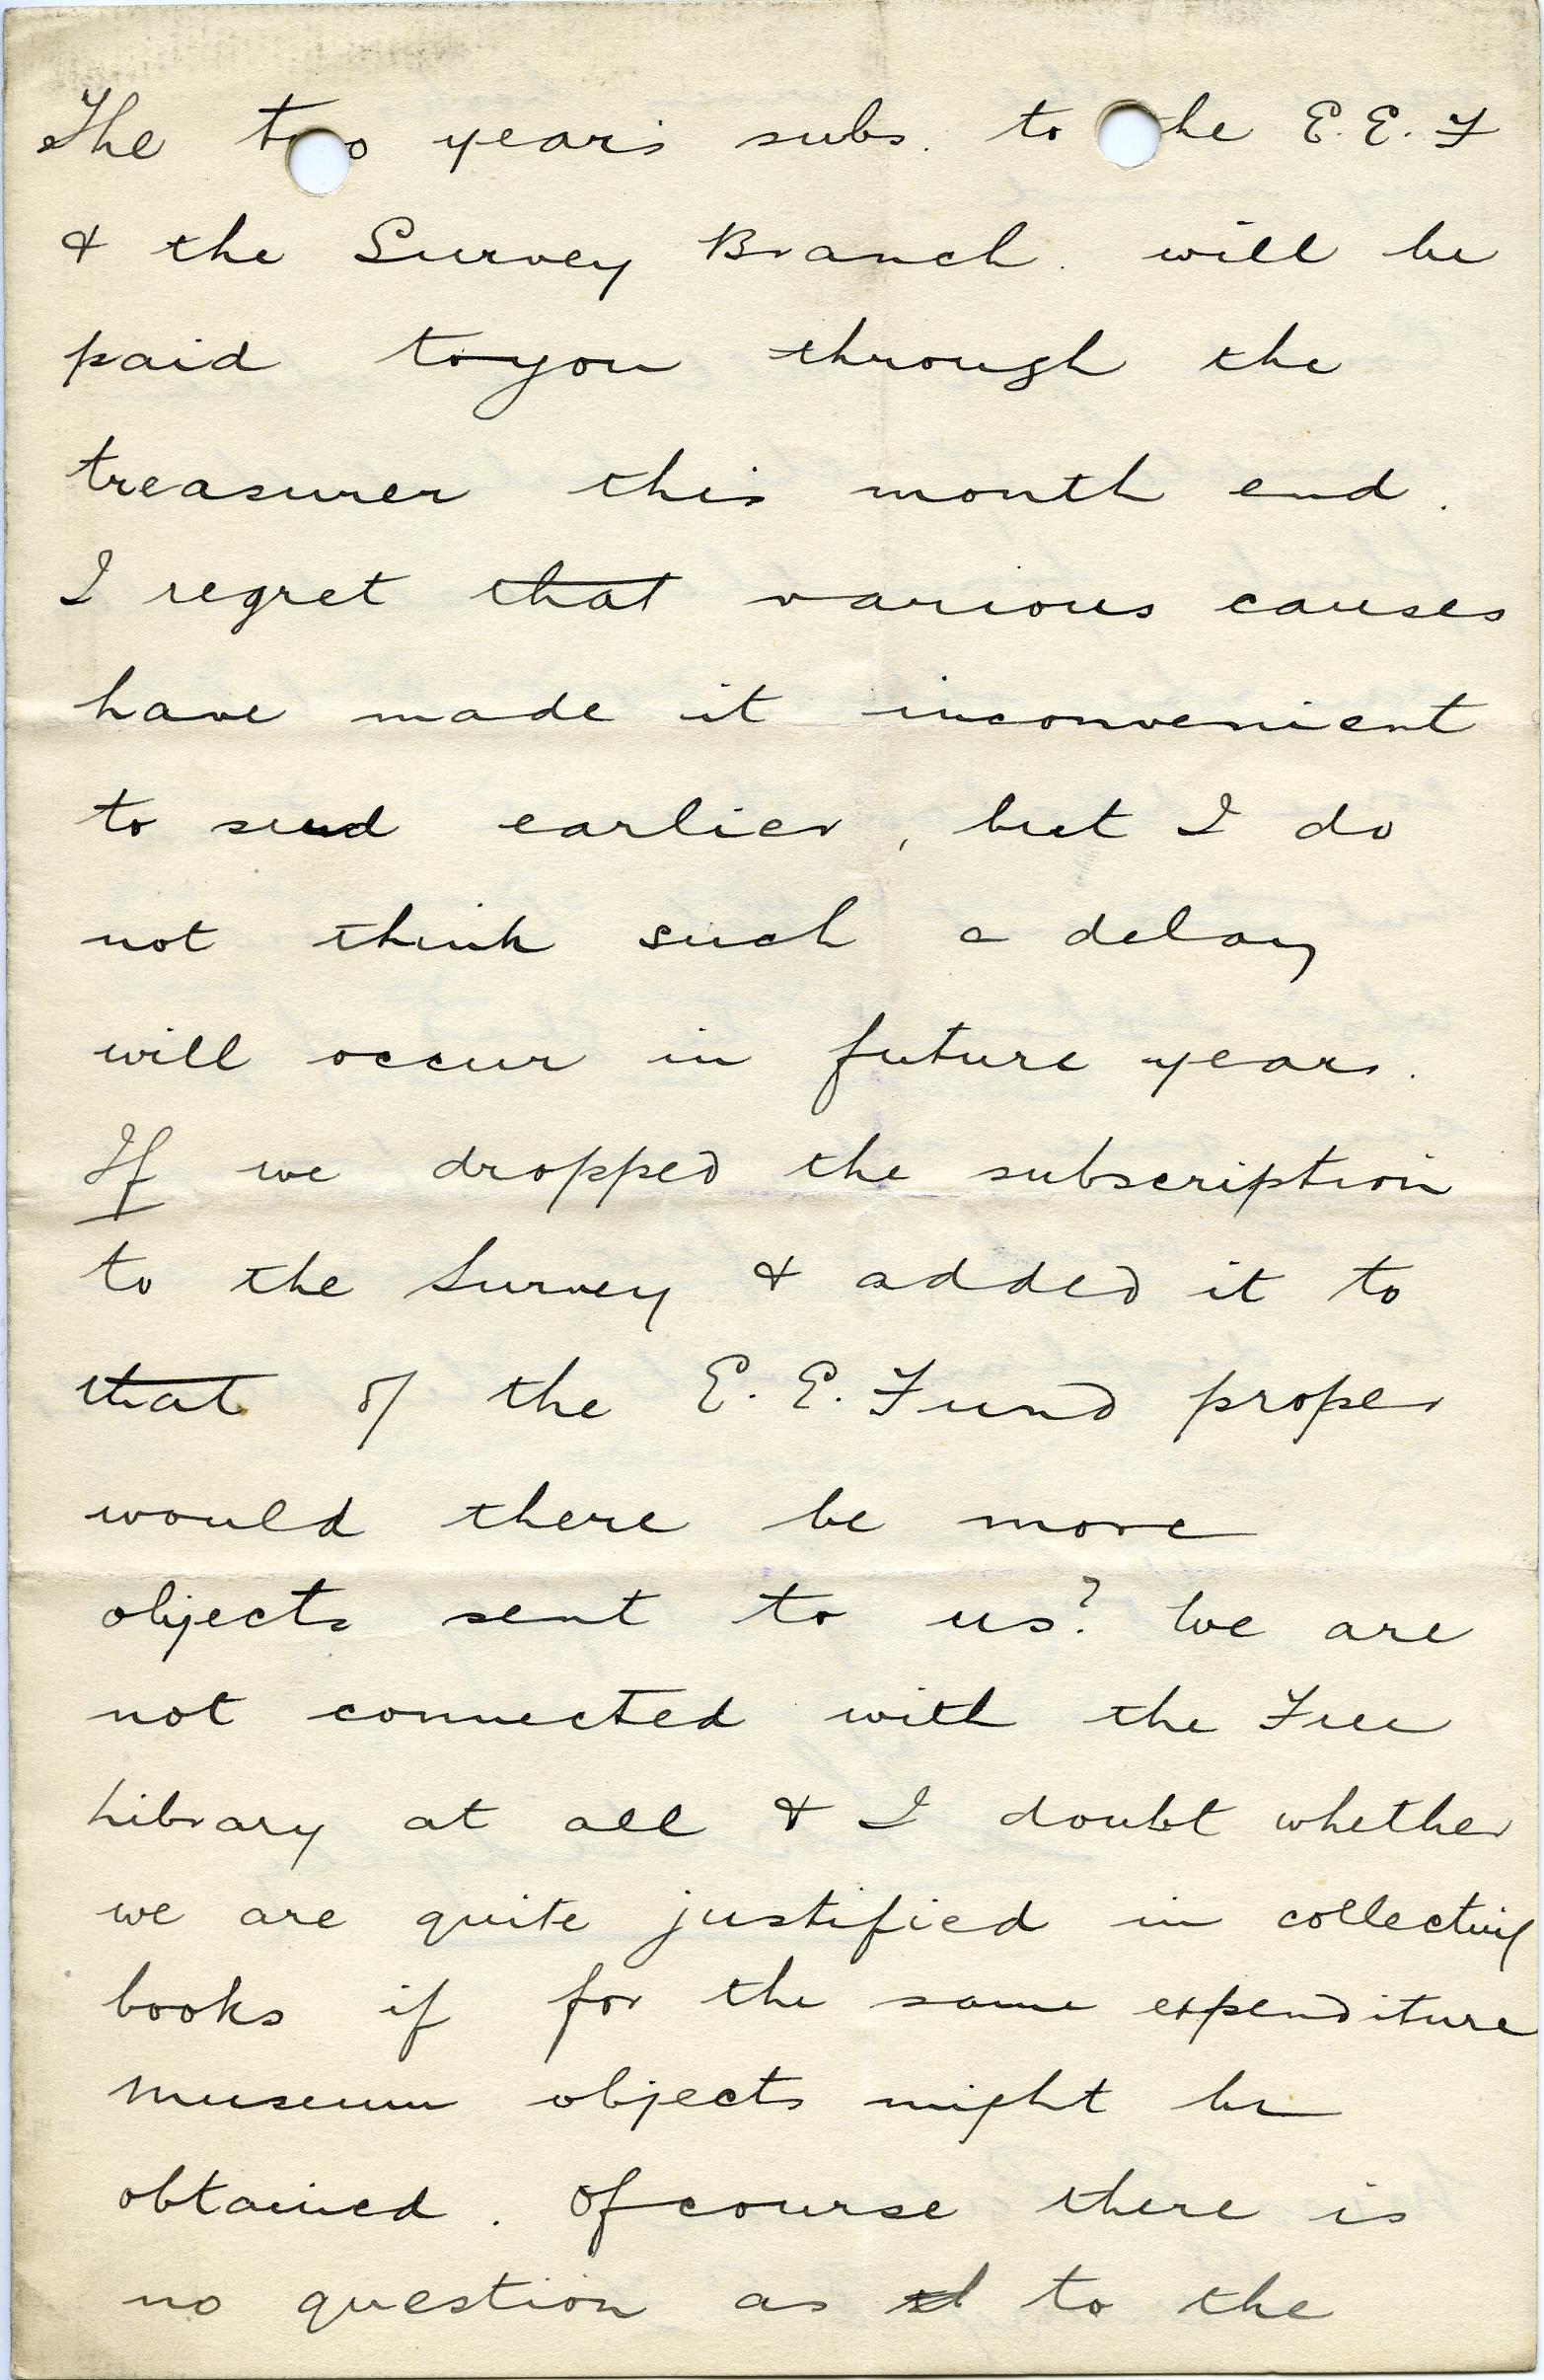 The two years subs. to the E.E.F
& the Survey Branch. will be
paid to you through the
treasurer this month end.
I regret that various causes
have made it inconvenient
to send earlier, but I do
not think such a delay
will occur in future years.
If we dropped the subscription
to the Survey & added it to
that of the E.E. Fund proper
would there be more
objects sent to us? We are
not connected with the Free
Library at all & I doubt whether
we are quite justified in collecting
books if for the same expenditure
museum objects might be
obtained. Of course there is
no question as to the